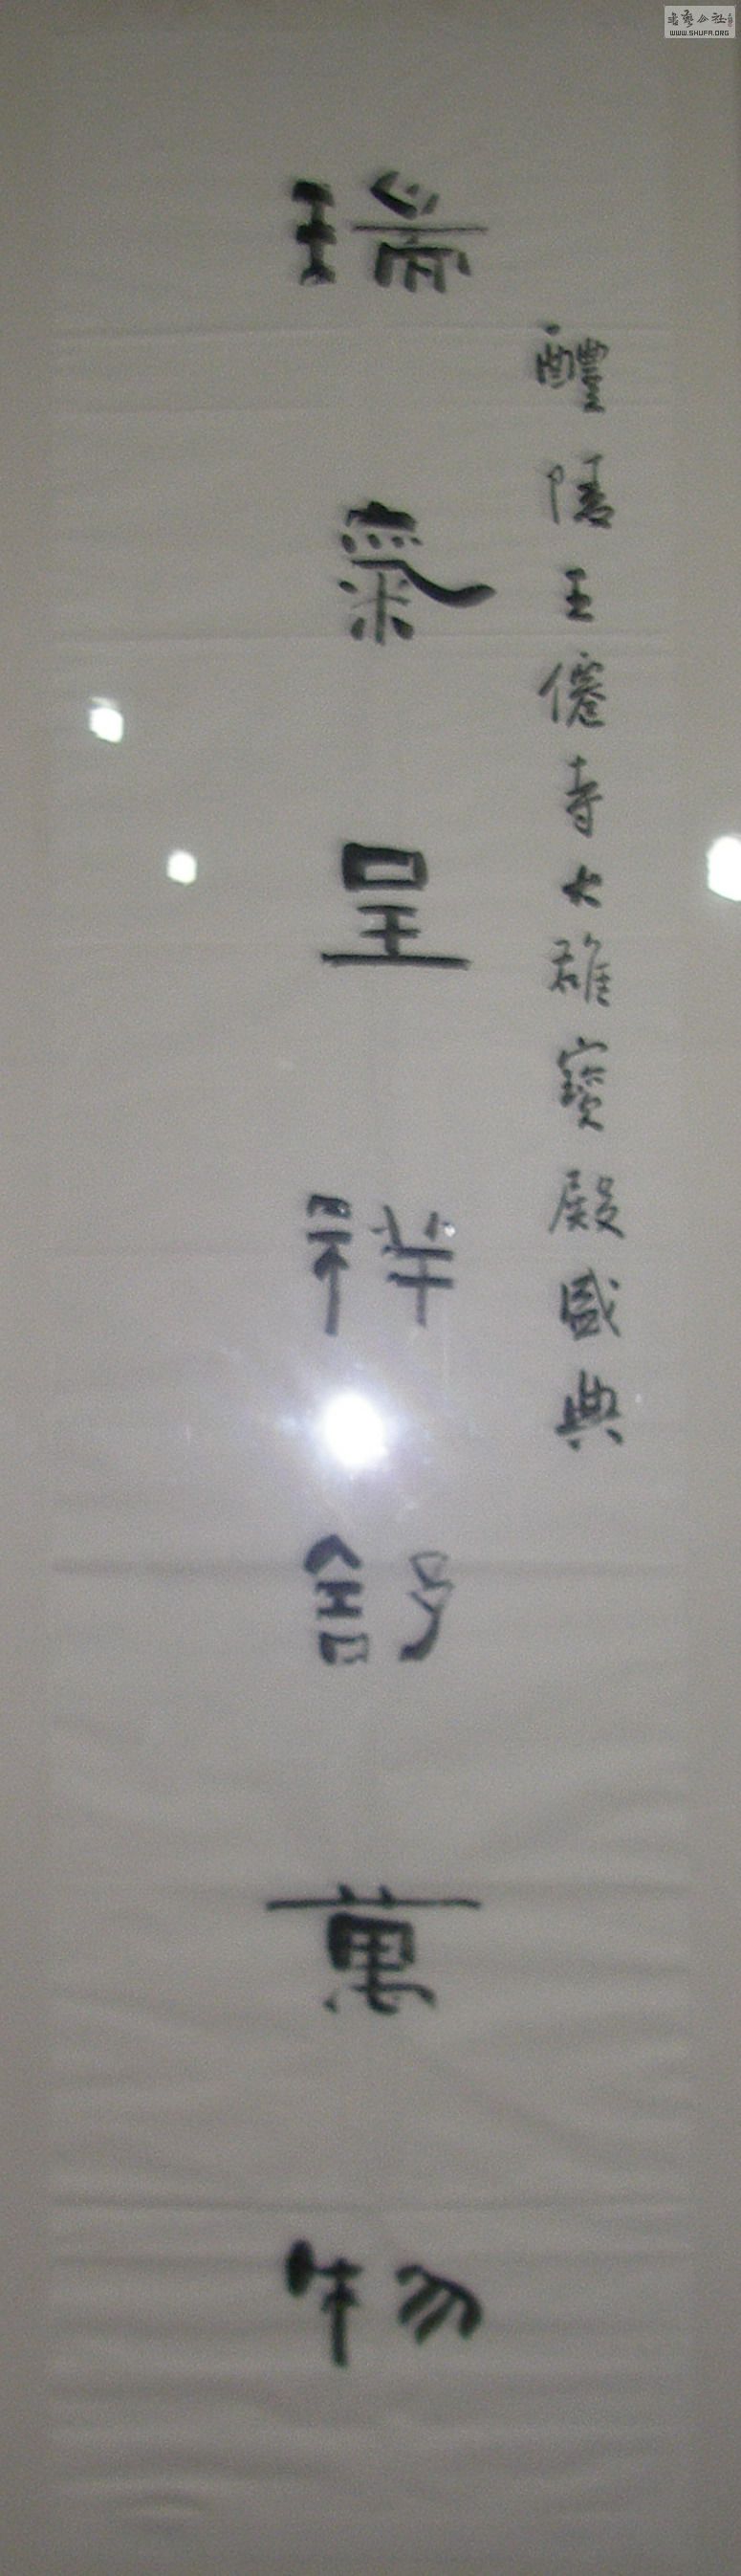 醴陵王僊寺大雄寶殿盛典
瑞氣呈祥舒萬物
WWW.SHUFA.ORG